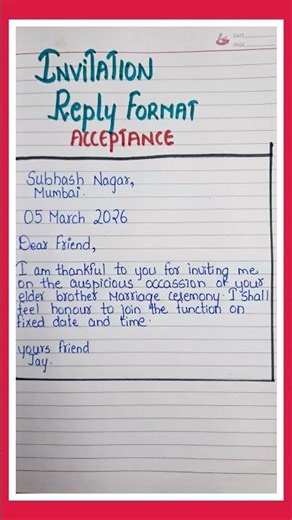 DATE
PAGE
INVITATION
REPLY FORMAT
ACCEPTANCE
Subhash Nagar,
Mumbai.
05 March 2026
Dear Friend,
I am thankful to you for inviting me
on the auspicious occassion of your
elder brother Marriage ceremony. I shall
feel honour to join the function on
fixed date and time.
yours friend
Jay.